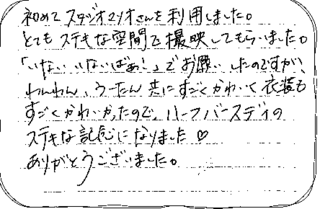 初めてスタジオマリオさんを利用しました。
とてもステキな空間で撮映してもらいました。
「いないいないばあっ!」でお願いしたのですが、
わんわん、うーたん共にすごくかわいく衣装も
すごくかわいかったので、ハーフバースディの
ステキな記念になりました♡
ありがとうございました。